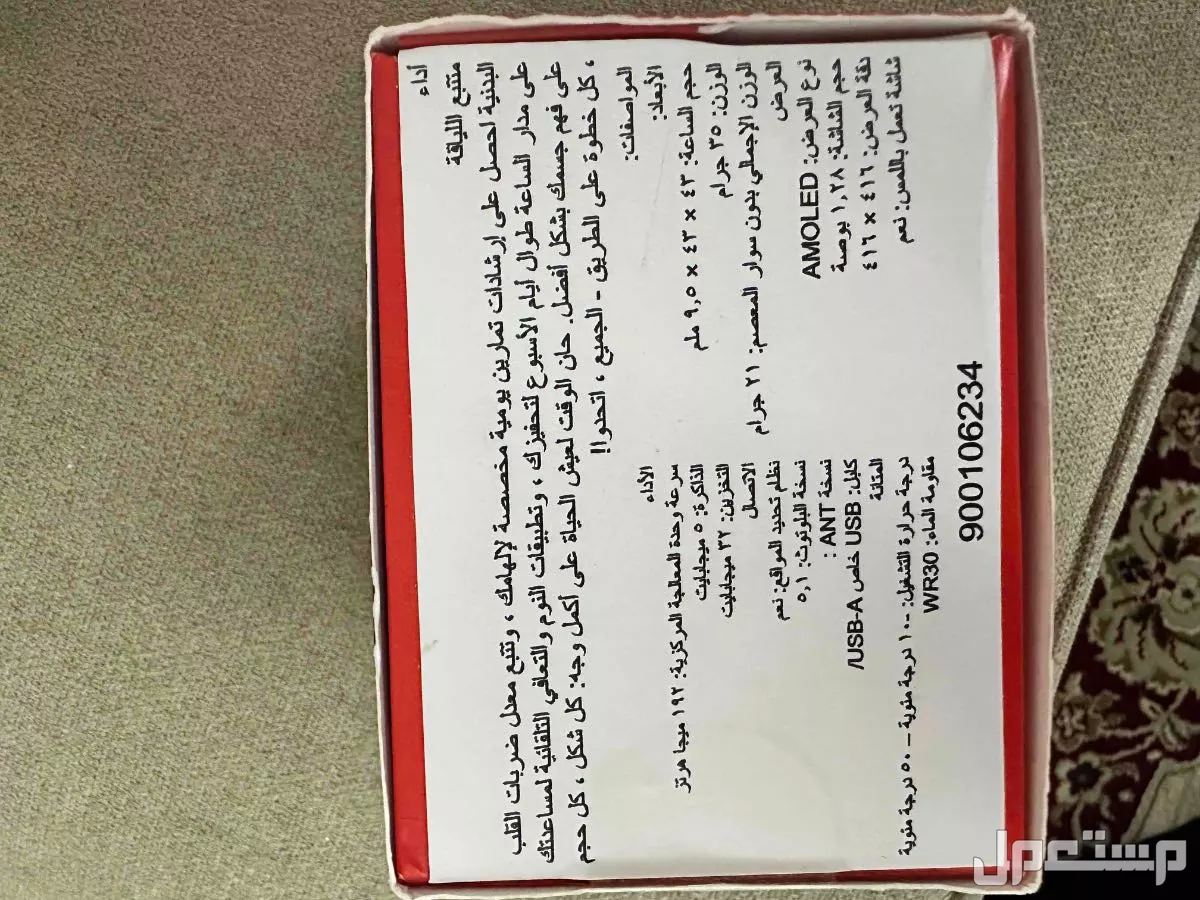 أداء
متتبع اللياقة
البدنية احصل على إرشادات تمارين يومية مخصصة لإلهامك ، وتتبع معدل ضربات القلب
على مدار الساعة طوال أيام الأسبوع لتحفيزك ، وتطبيقات النوم والتعافي التلقائية لمساعدتك
على فهم جسمك بشكل أفضل. حان الوقت لعيش الحياة على أكمل وجه: كل شكل ، كل حجم
، كل خطوة على الطريق - الجميع ، اتحدوا!!
المواصفات:
الأبعاد:
حجم الساعة: ٤٣ x ٤٣ x ٩,٥ ملم
الوزن: ٣٥ جرام
الوزن الإجمالي بدون سوار المعصم: ٢١ جرام
العرض
نوع العرض: AMOLED
حجم الشاشة: ١,٢٨ بوصة
دقة العرض: ٤١٦ x ٤١٦
شاشة تعمل باللمس: نعم
الأداء
سرعة وحدة المعالجة المركزية: ١٩٢ ميجا هرتز
الذاكرة: ٥ ميجابايت
التخزين: ٣٢ ميجابايت
الاتصال
نظام تحديد المواقع: نعم
نسخة البلوتوث: ٥,١
نسخة ANT :
كابل: USB خاص USB-A/
المتانة
درجة حرارة التشغيل: -١٠ درجة مئوية – ٥٠ درجة مئوية
مقاومة الماء: WR30
900106234
مستعمل